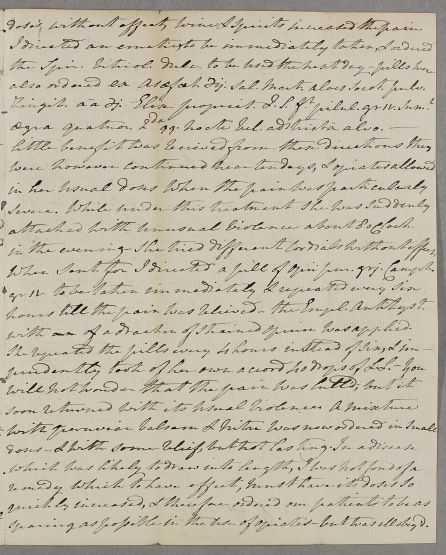 doses, without effect, wine & Spirits increased the pain.
I directed an emetic, to be immediately taken, & ordered
the Spir. Vitriol. dulc. to be used the next day - pills were
also ordered ex Asafœt. ʒij. Sal. Mart. aloes Socot. pulv.
Zingib. aa ʒj Elix. propriet. q.S. ft. pilul. gr. IV. Sum.t
ægra quatuor 2da qq. nocte vel. adstricta alvo. -
little benefit was received from these directions they
were however continued near ten days, & opiates allowed
in her usual doses when the pain was particularly
severe. While under this treatment she was suddenly
attacked with unusual violence about 8 oClock
in the evening - she tried different Cordials without effect,
When sent for I directed a pill of opii pur. grj. Camph.
gr. IV to be taken immediately & repeated every Six
hours till the pain was relieved - the Empl.
with a drachm of strained opium was applied.
She repeated the pills every 4 hours instead of Six, & im-
prudently took of her own accord 40 drops of L.L. - You
will not wonder that the pain was lulled; but it
soon returned with its usual violence. A mixture
with peruvian balsam & Nitre was now ordered in small
doses - & with some relief but not lasting. In a disease
which was likely to draw into length, I was not fond of a
remedy which to have effect, must have its doses so
quickly increased, & therefore ordered our patient to be as
sparing as possible in the use of opiates - but was ill obey'd.